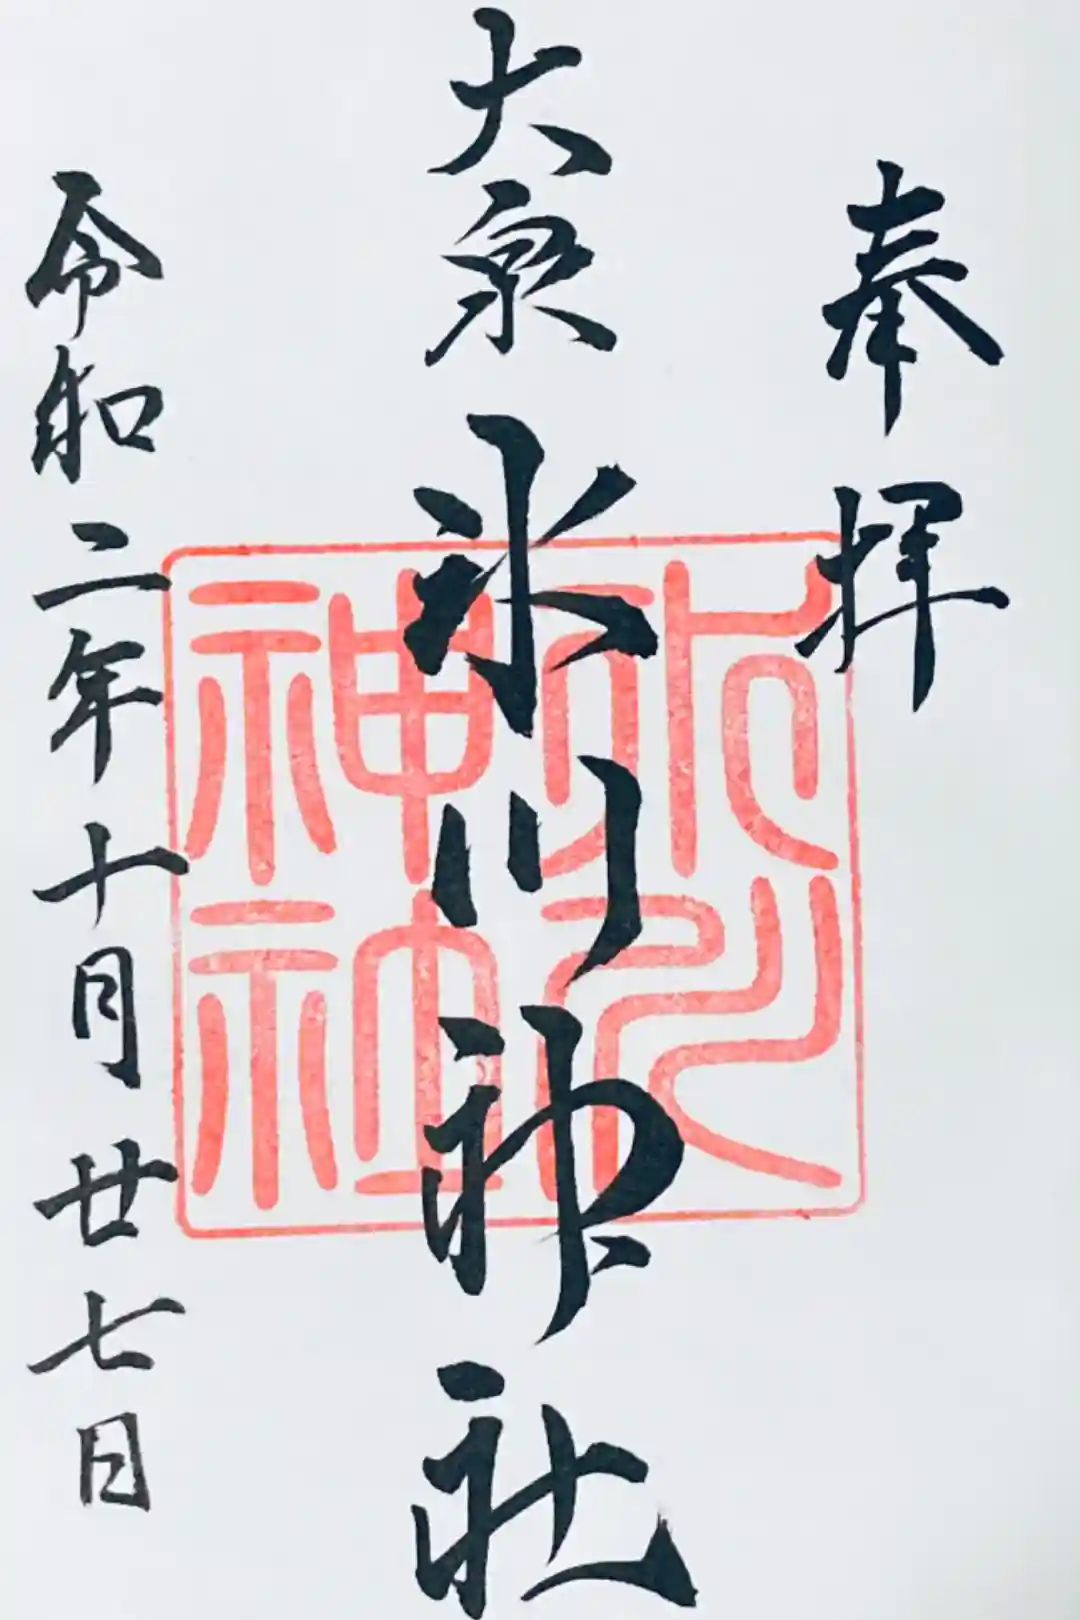 奉拝
大泉氷川神社
氷川神社
令和二年十月廿七日